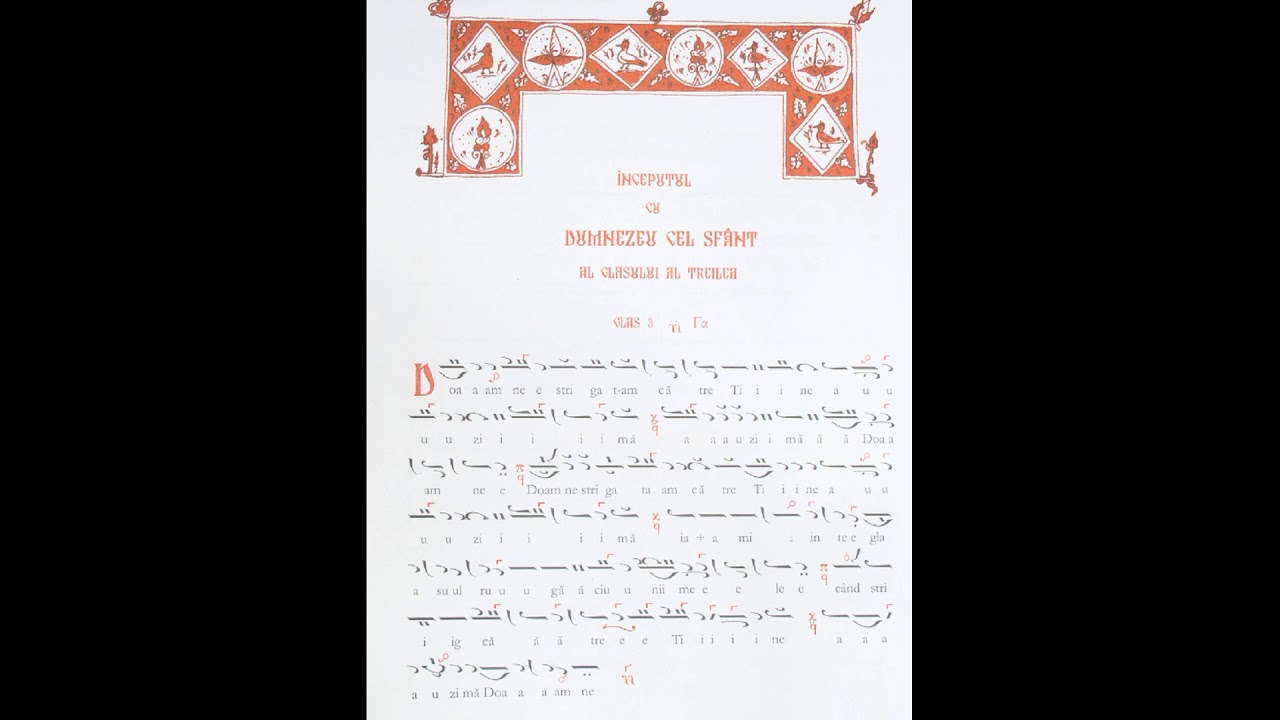 ÎNCEPUTUL
CU
DUMNEZEU CEL SFÂNT
AL GLASULUI AL TREILEA
GLAS 3 Γα
Doa a am ne e stri ga t-am că tre Ti i i ne a u u
u u zi i i i i mă a a a u zi mă ă ă Doa a
am ne e Doam ne stri ga ta am că tre Ti i i ne a u u
u u zi i i i i mă ia + a mi : in te e gla
a su ul ru u u gă ă ciu u nii me e e le e când stri
i ig că ă ă tre e e Ti i i i i ne a a a
a u zi mă Doa a a am ne